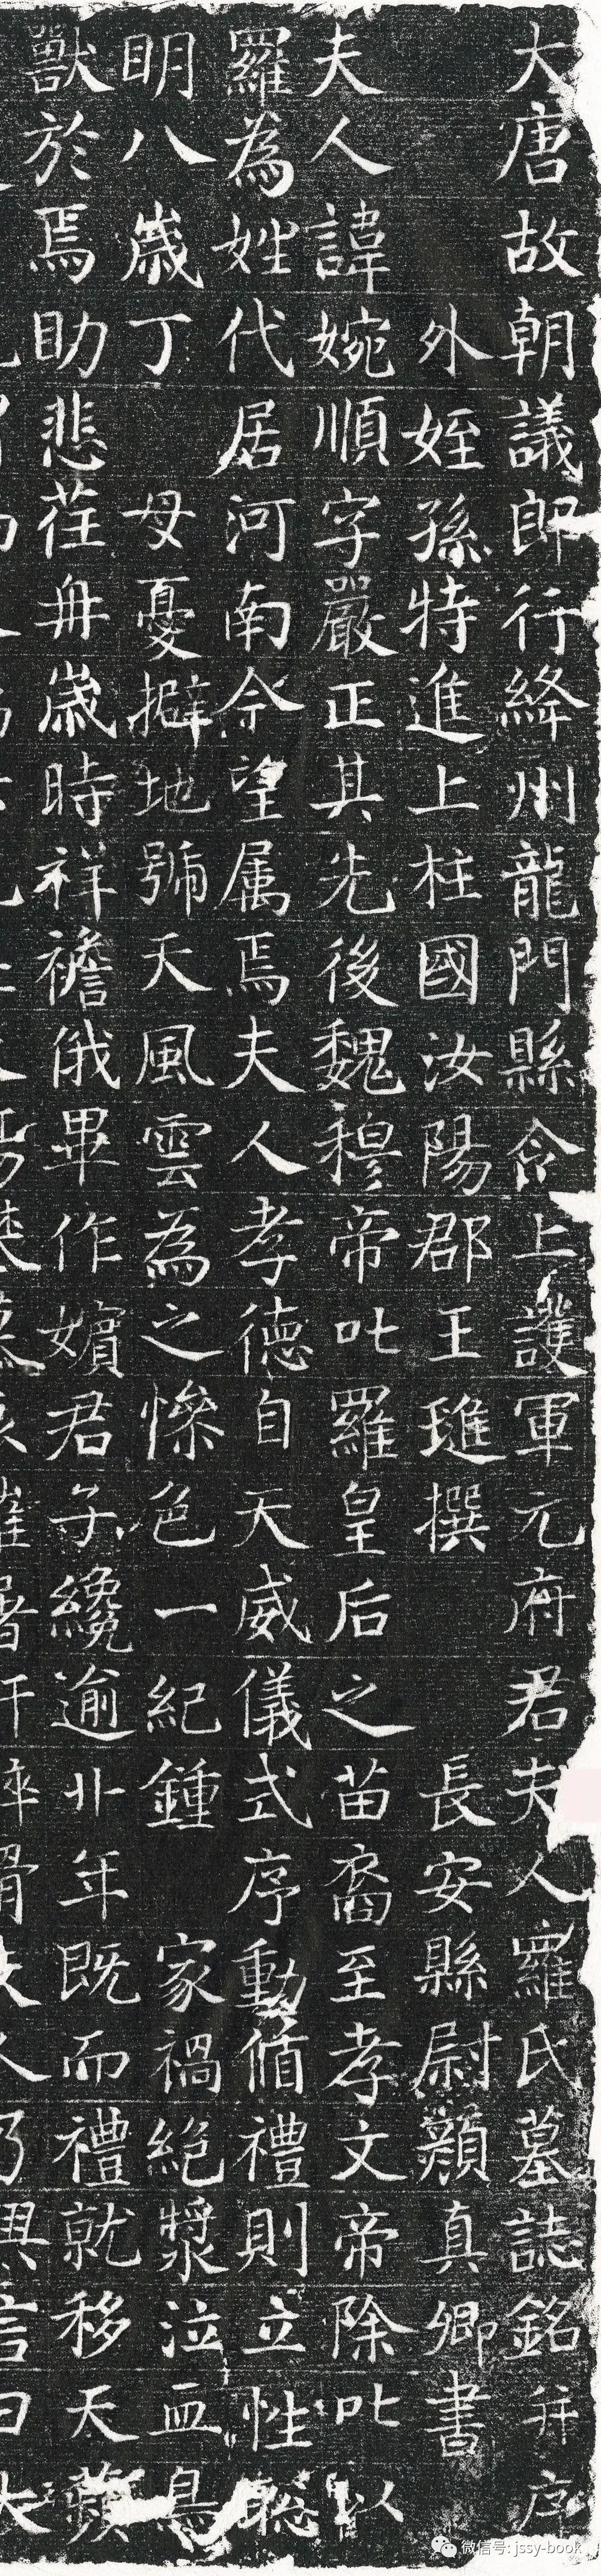 大唐故朝議郎行絳州龍門縣令上護軍元府君夫人羅氏墓誌銘并序
外姪孫特進上柱國汝陽郡王璡撰 長安縣尉顏真卿書
夫人諱婉順字嚴正其先後魏穆帝叱羅皇后之苗裔至孝文帝除叱以
羅為姓代居河南今望属焉夫人孝德自天威儀式序動循禮則立性聰
明八歲丁 母憂擗地號天風雲為之慘色一紀鍾 家禍絕漿泣血鳥
獸於焉助悲荏冉歲時祥禫俄畢作嬪君子纔逾卝年既而禮就移天蘋
微信号: jssy-book